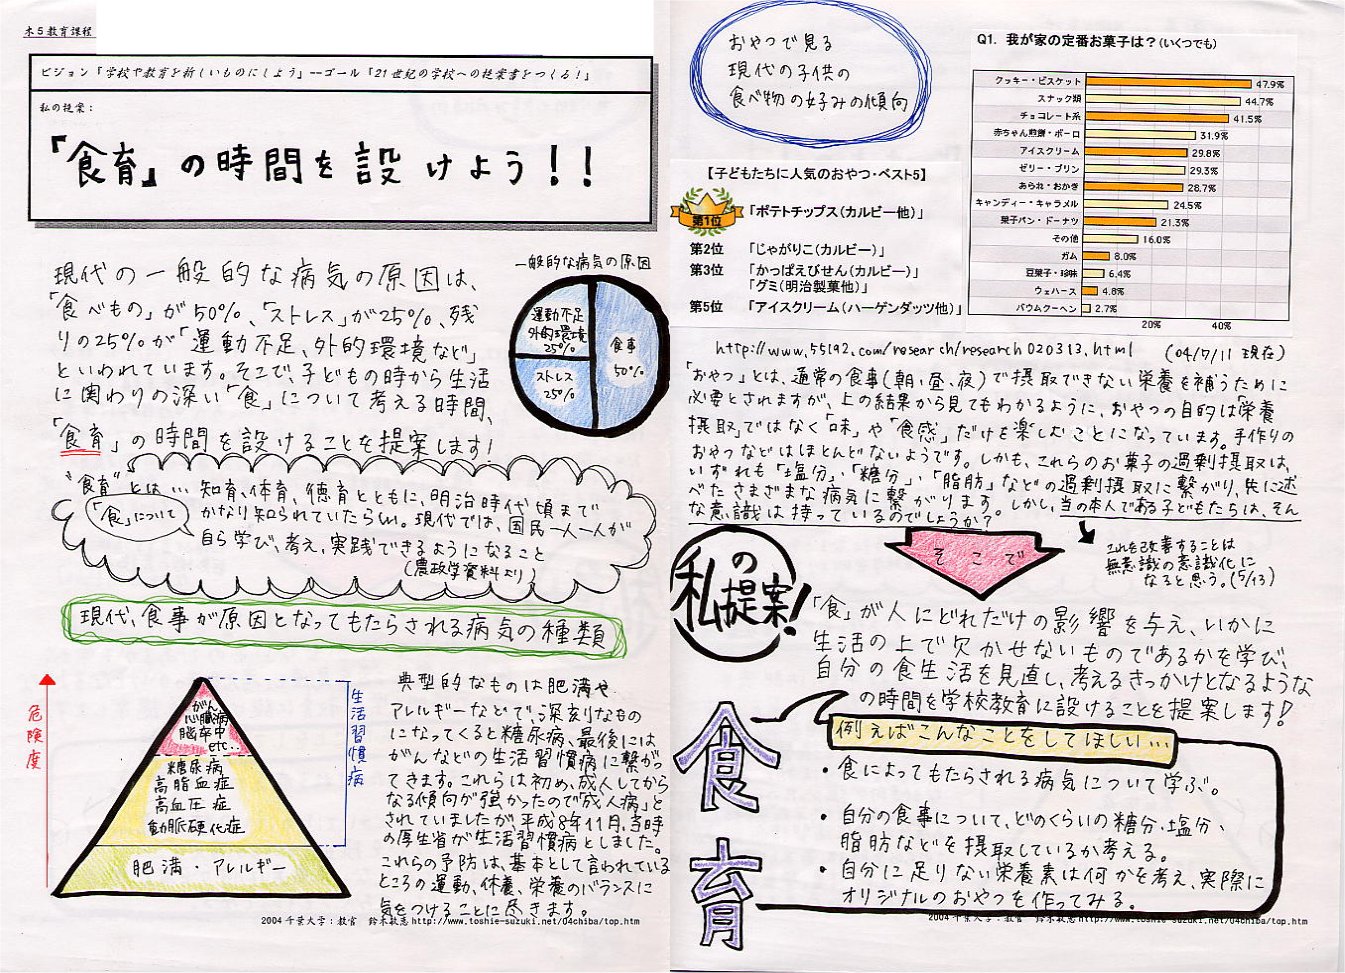 木5教育課程
ビジョン「学校や教育を新しいものにしよう」--ゴール「21世紀の学校への提案書をつくる!」
私の提案:
『食育』の時間を設けよう!!
現代の一般的な病気の原因は、
「食べもの」が50%、「ストレス」が25%、残
りの25%が「運動不足、外的環境など」
といわれています。そこで、子どもの時から生活
に関わりの深い「食」について考える時間、
「食育」の時間を設けることを提案します!
一般的な病気の原因
運動不足
外的環境
25%
食事
50%
ストレス
25%
"食育"とは…知育、体育、徳育とともに、明治時代頃まで
「食」について
かなり知られていたらしい。現代では、国民一人一人が
自ら学び、考え、実践できるようになること
(農政学資料より)
現代、食事が原因となってもたらされる病気の種類
危険度
生活習慣病
がん
心臓病
脳卒中
etc..
糖尿病
高脂血症
高血圧症
動脈硬化症
肥満・アレルギー
典型的なものは肥満や
アレルギーなどで、深刻なもの
になってくると糖尿病、最後には
がんなどの生活習慣病に繋がっ
てきます。これらは初め、成人してから
なる傾向が強かったので「成人病」と
されていましたが平成8年11月、当時
の厚生省が生活習慣病としました。
これらの予防は、基本として言われている
ところの運動、休養、栄養のバランスに
気をつけることに尽きます。
2004千葉大学:教官 鈴木敏恵http://www.toshie-suzuki.net/04chiba/top.htm
おやつで見る
現代の子供の
食べ物の好みの傾向
【子どもたちに人気のおやつ・ベスト5】
第1位 「ポテトチップス(カルビー他)」
第2位 「じゃがりこ(カルビー)」
第3位 「かっぱえびせん(カルビー)」
「グミ(明治製菓他)」
第5位 「アイスクリーム(ハーゲンダッツ他)」
Q1. 我が家の定番お菓子は?(いくつでも)
クッキー・ビスケット 47.9%
スナック類 44.7%
チョコレート系 41.5%
赤ちゃん煎餅・ボーロ 31.9%
アイスクリーム 29.8%
ゼリー・プリン 29.3%
あられ・おかき 28.7%
キャンディー・キャラメル 24.5%
菓子パン・ドーナツ 21.3%
その他 16.0%
ガム 8.0%
豆菓子・珍味 6.4%
ウェハース 4.8%
バウムクーヘン 2.7%
20% 40%
http://www.55192.com/research/research020313.html (04/7/11 現在)
「おやつ」とは、通常の食事(朝、昼、夜)で摂取できない栄養を補うために
必要とされますが、上の結果から見てもわかるように、おやつの目的は「栄養
摂取」ではなく「味」や「食感」だけを楽しむことになっています。手作りの
おやつなどはほとんどないようです。しかも、これらのお菓子の過剰摂取は、
いずれも「塩分」、「糖分」、「脂肪」などの過剰摂取に繋がり、先に述
べたさまざまな病気に繋がります。しかし、当の本人である子どもたちは、そん
な意識は持っているのでしょうか?
そこで
これを改善することは
無意識の意識化に
なると思う。(5/13)
私の提案!
「食」が人にどれだけの影響を与え、いかに
生活の上で欠かせないものであるかを学び、
自分の食生活を見直し、考えるきっかけとなるような
の時間を学校教育に設けることを提案します!
食育
例えばこんなことをしてほしい…
・食によってもたらされる病気について学ぶ。
・自分の食事について、どのくらいの糖分・塩分、
脂肪などを摂取しているか考える。
・自分に足りない栄養素は何かを考え、実際に
オリジナルのおやつを作ってみる。
2004千葉大学:教官 鈴木敏恵http://www.toshie-suzuki.net/04chiba/top.htm